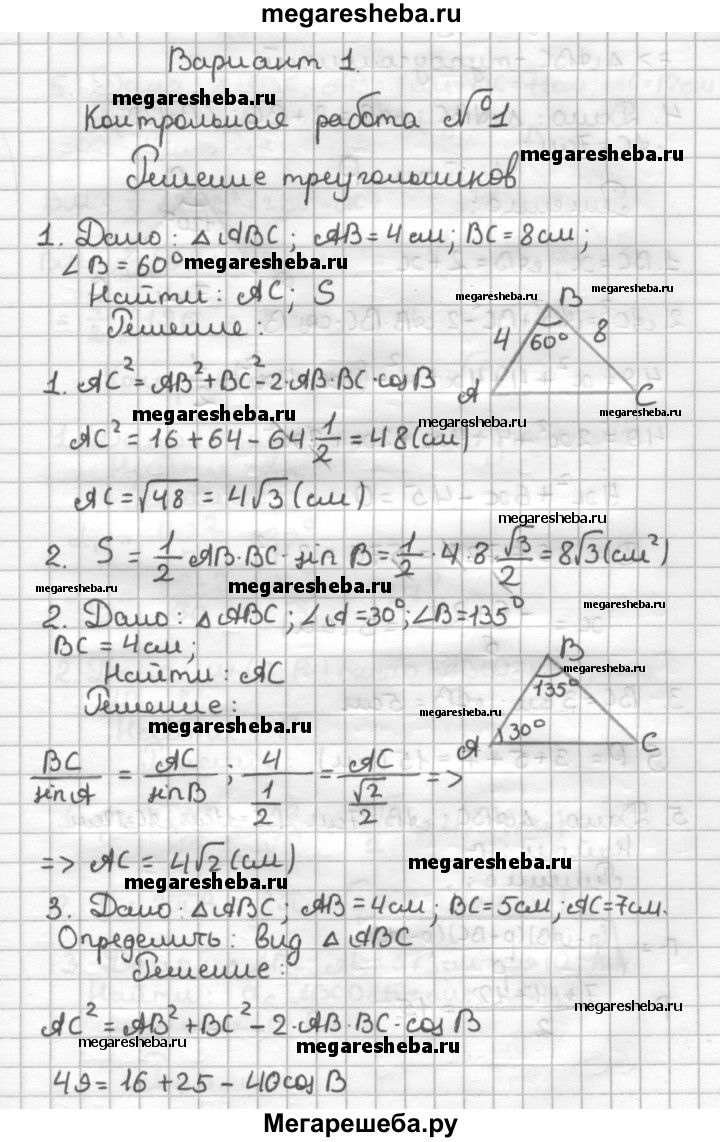 megaresheba.ru
Вариант 1.
megaresheba.ru
Контрольная работа №1
megaresheba.ru
Решение треугольников
1. Дано: △ABC; AB=4см; BC=8см;
∠B=60° megaresheba.ru
Найти: AC; S
megaresheba.ru B megaresheba.ru
Решение:
4 60° 8
1. AC²=AB²+BC²-2·AB·BC·cosB
A C
megaresheba.ru megaresheba.ru megaresheba.ru
AC²=16+64-64·1/2=48(см)
AC=√48=4√3(см)
megaresheba.ru
2. S=1/2 AB·BC·sin B=1/2·4·8·√3/2=8√3(см²)
megaresheba.ru megaresheba.ru megaresheba.ru
2. Дано: △ABC; ∠A=30°; ∠B=135°
BC=4см;
B
megaresheba.ru
Найти: AC
135°
Решение:
megaresheba.ru megaresheba.ru
A 30° C
BC/sinA = AC/sinB; 4/(1/2) = AC/(√2/2) =>
=> AC=4√2(см)
megaresheba.ru megaresheba.ru
3. Дано: △ABC; AB=4см; BC=5см; AC=7см.
Определить: вид △ABC
Решение:
megaresheba.ru
AC²=AB²+BC²-2·AB·BC·cosB
megaresheba.ru megaresheba.ru
49=16+25-40cosB
Мегарешеба.ру